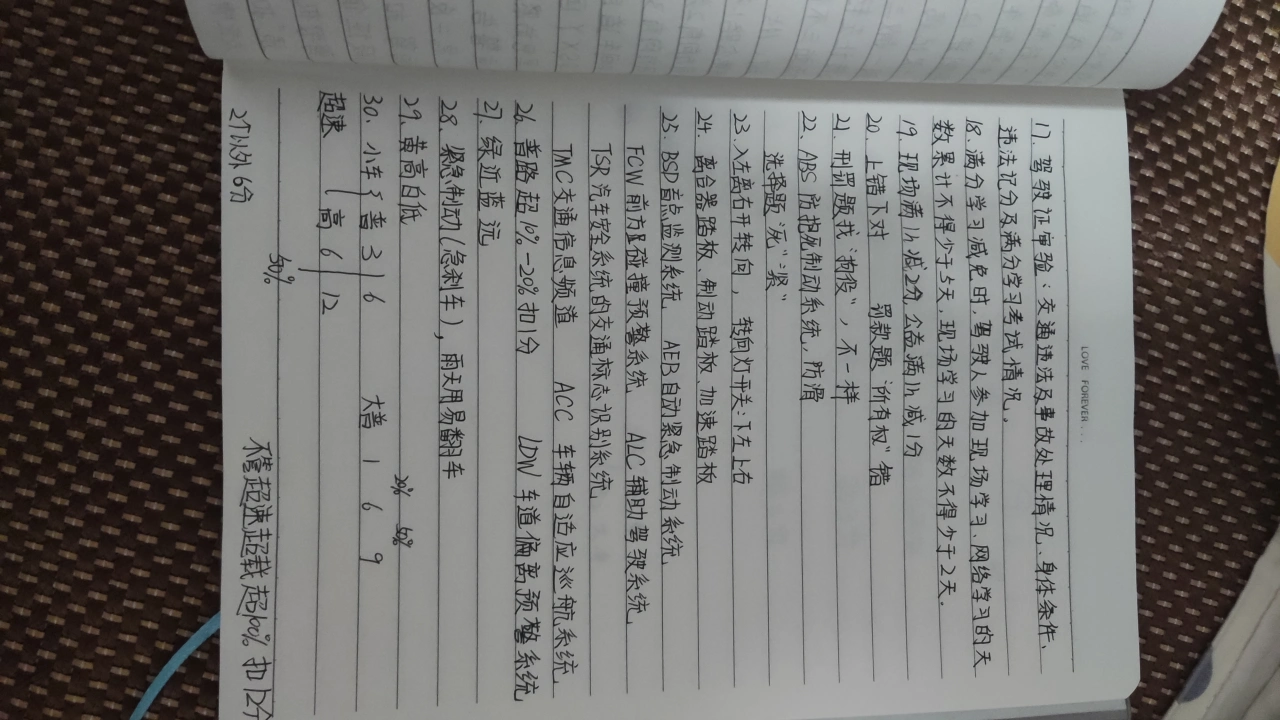 LOVE FOREVER...
17. 驾驶证审验：交通违法及事故处理情况、身体条件、
违法记分及满分学习考试情况。
18. 满分学习减免时，驾驶人参加现场学习、网络学习的天
数累计不得少于5天，现场学习的天数不得少于2天。
19. 现场满1h减2分，公益满1h减1分
20. 上错下对 罚款题“所有权”错
21. 刑罪题找“徇假”，不一样
22. ABS 防抱死制动系统，防滑
选择题 沉“紧”
23. 入左离右开转向，转向灯开关：下左上右
24. 离合器踏板、制动踏板、加速踏板
25. BSD盲点监测系统 AEB自动紧急制动系统
FCW前方碰撞预警系统 ALC辅助驾驶系统
TSR汽车安全系统的交通标志识别系统
TMC交通信息频道 ACC 车辆自适应巡航系统
26. 普路超10%-20%扣1分 LDW车道偏离预警系统
27. 绿近蓝远
28. 紧急制动(急刹车)，雨天用易翻车
29. 黄高白低
20% 50%
30. 小车 普 3 6 大普 1 6 9
超速 高 6 12
50%
2个以外6分 不管超速超载超100% 扣12分